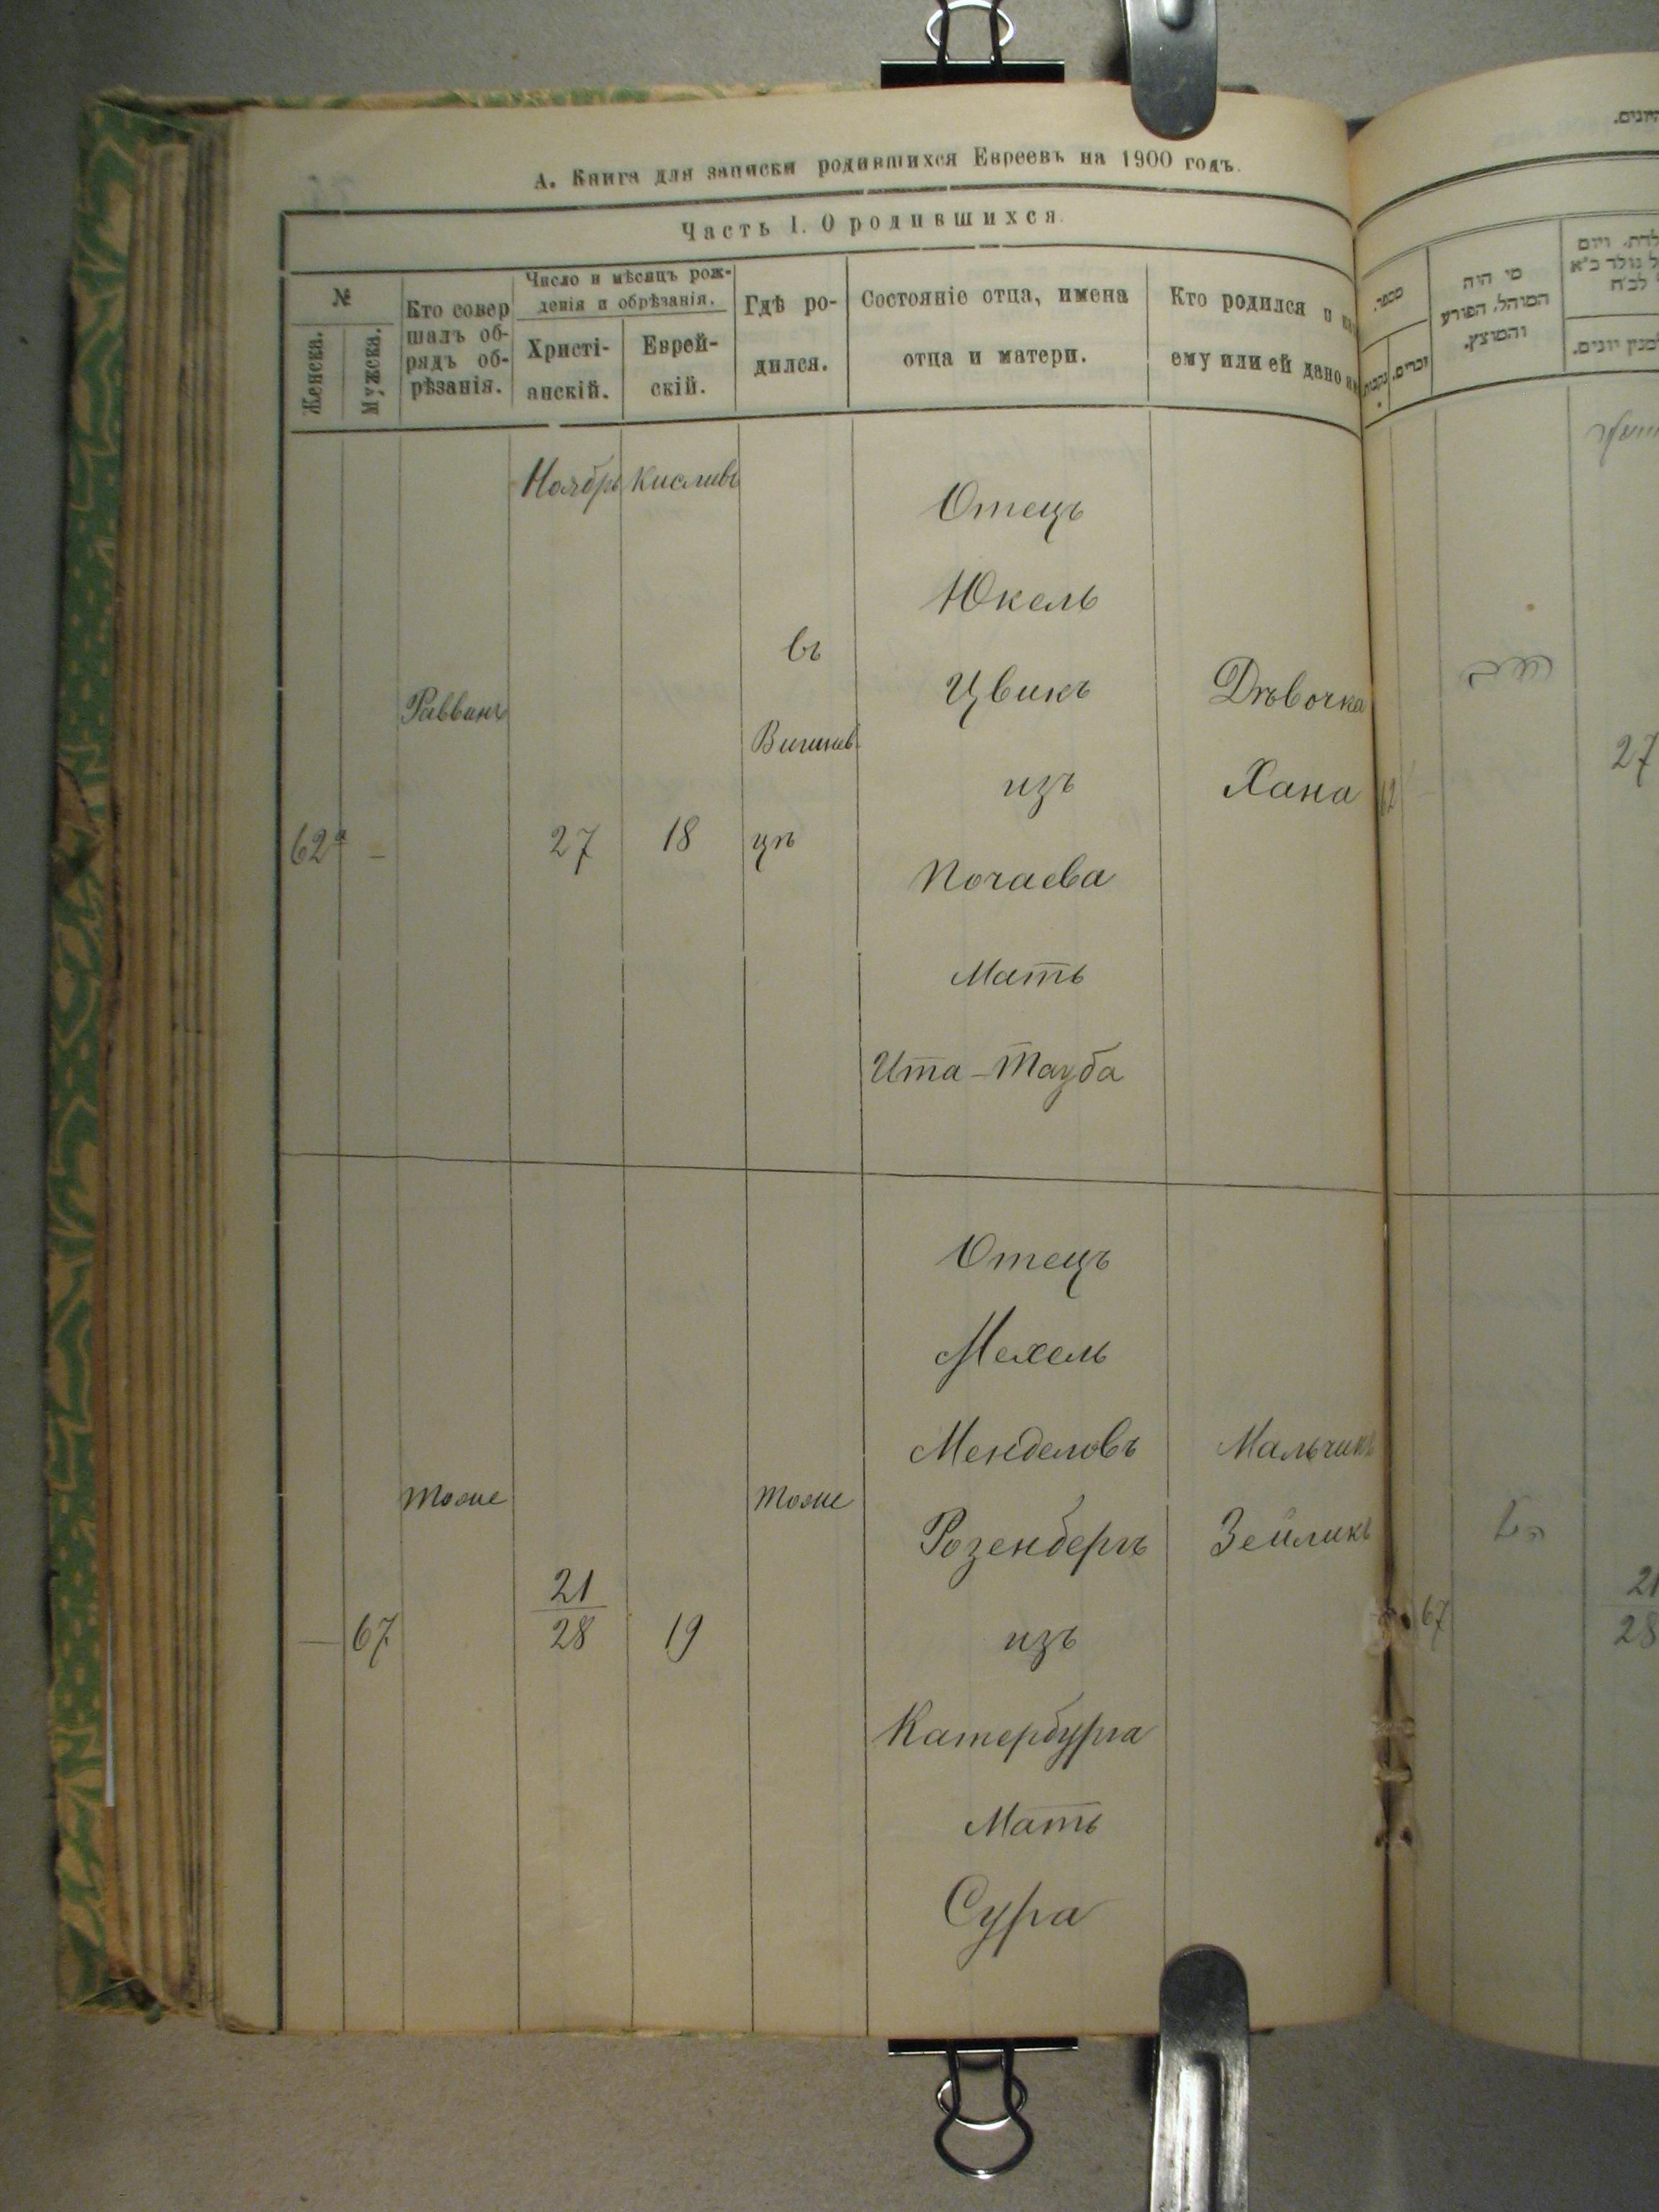 А. Книга для записки родившихся Евреевъ на 1900 годъ.
Часть I. О родившихся.
№
Женска.
Мужска.
Кто совер
шалъ об-
рядъ об-
рѣзанія.
Число и мѣсяцъ рож-
денія и обрѣзанія.
Христі-
анскій.
Еврей-
скій.
Гдѣ ро-
дился.
Состояніе отца, имена
отца и матери.
Кто родился и
ему или ей дано
Ноябрь
Кисливъ
62а
–
Раввинъ
27
18
въ
Вишнев
цѣ
Отецъ
Юкель
Цвикъ
изъ
Почаева
Мать
Ита-Тауба
Дѣвочка
Хана
—
67
тоже
21
28
19
тоже
Отецъ
Мехель
Менделовъ
Розенбергъ
изъ
Катербурга
Мать
Сура
Мальчикъ
Зейликъ
מספר.
זכרים.
מי היה
המוהל, הפורע
והמוצץ.
27
67
21
28